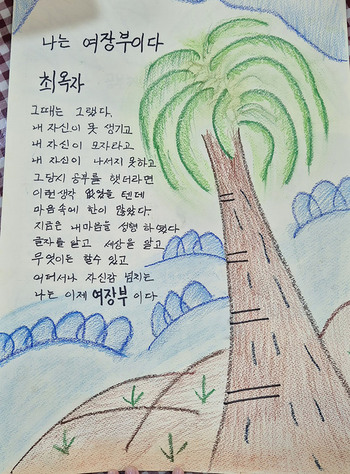 나는 여장부이다
최옥자
그때는 그랬다.
내 자신이 못 생기고
내 자신이 모자라고
내 자신이 나서지 못하고
그당시 공부를 했더라면
이런생각 없었을 텐데
마음속에 한이 많았다
지금은 내마음을 성형 하였다
글자를 알고 세상을 알고
무엇이든 할수 있고
어려서나 자신감 넘치는
나는 이제 여장부 이다